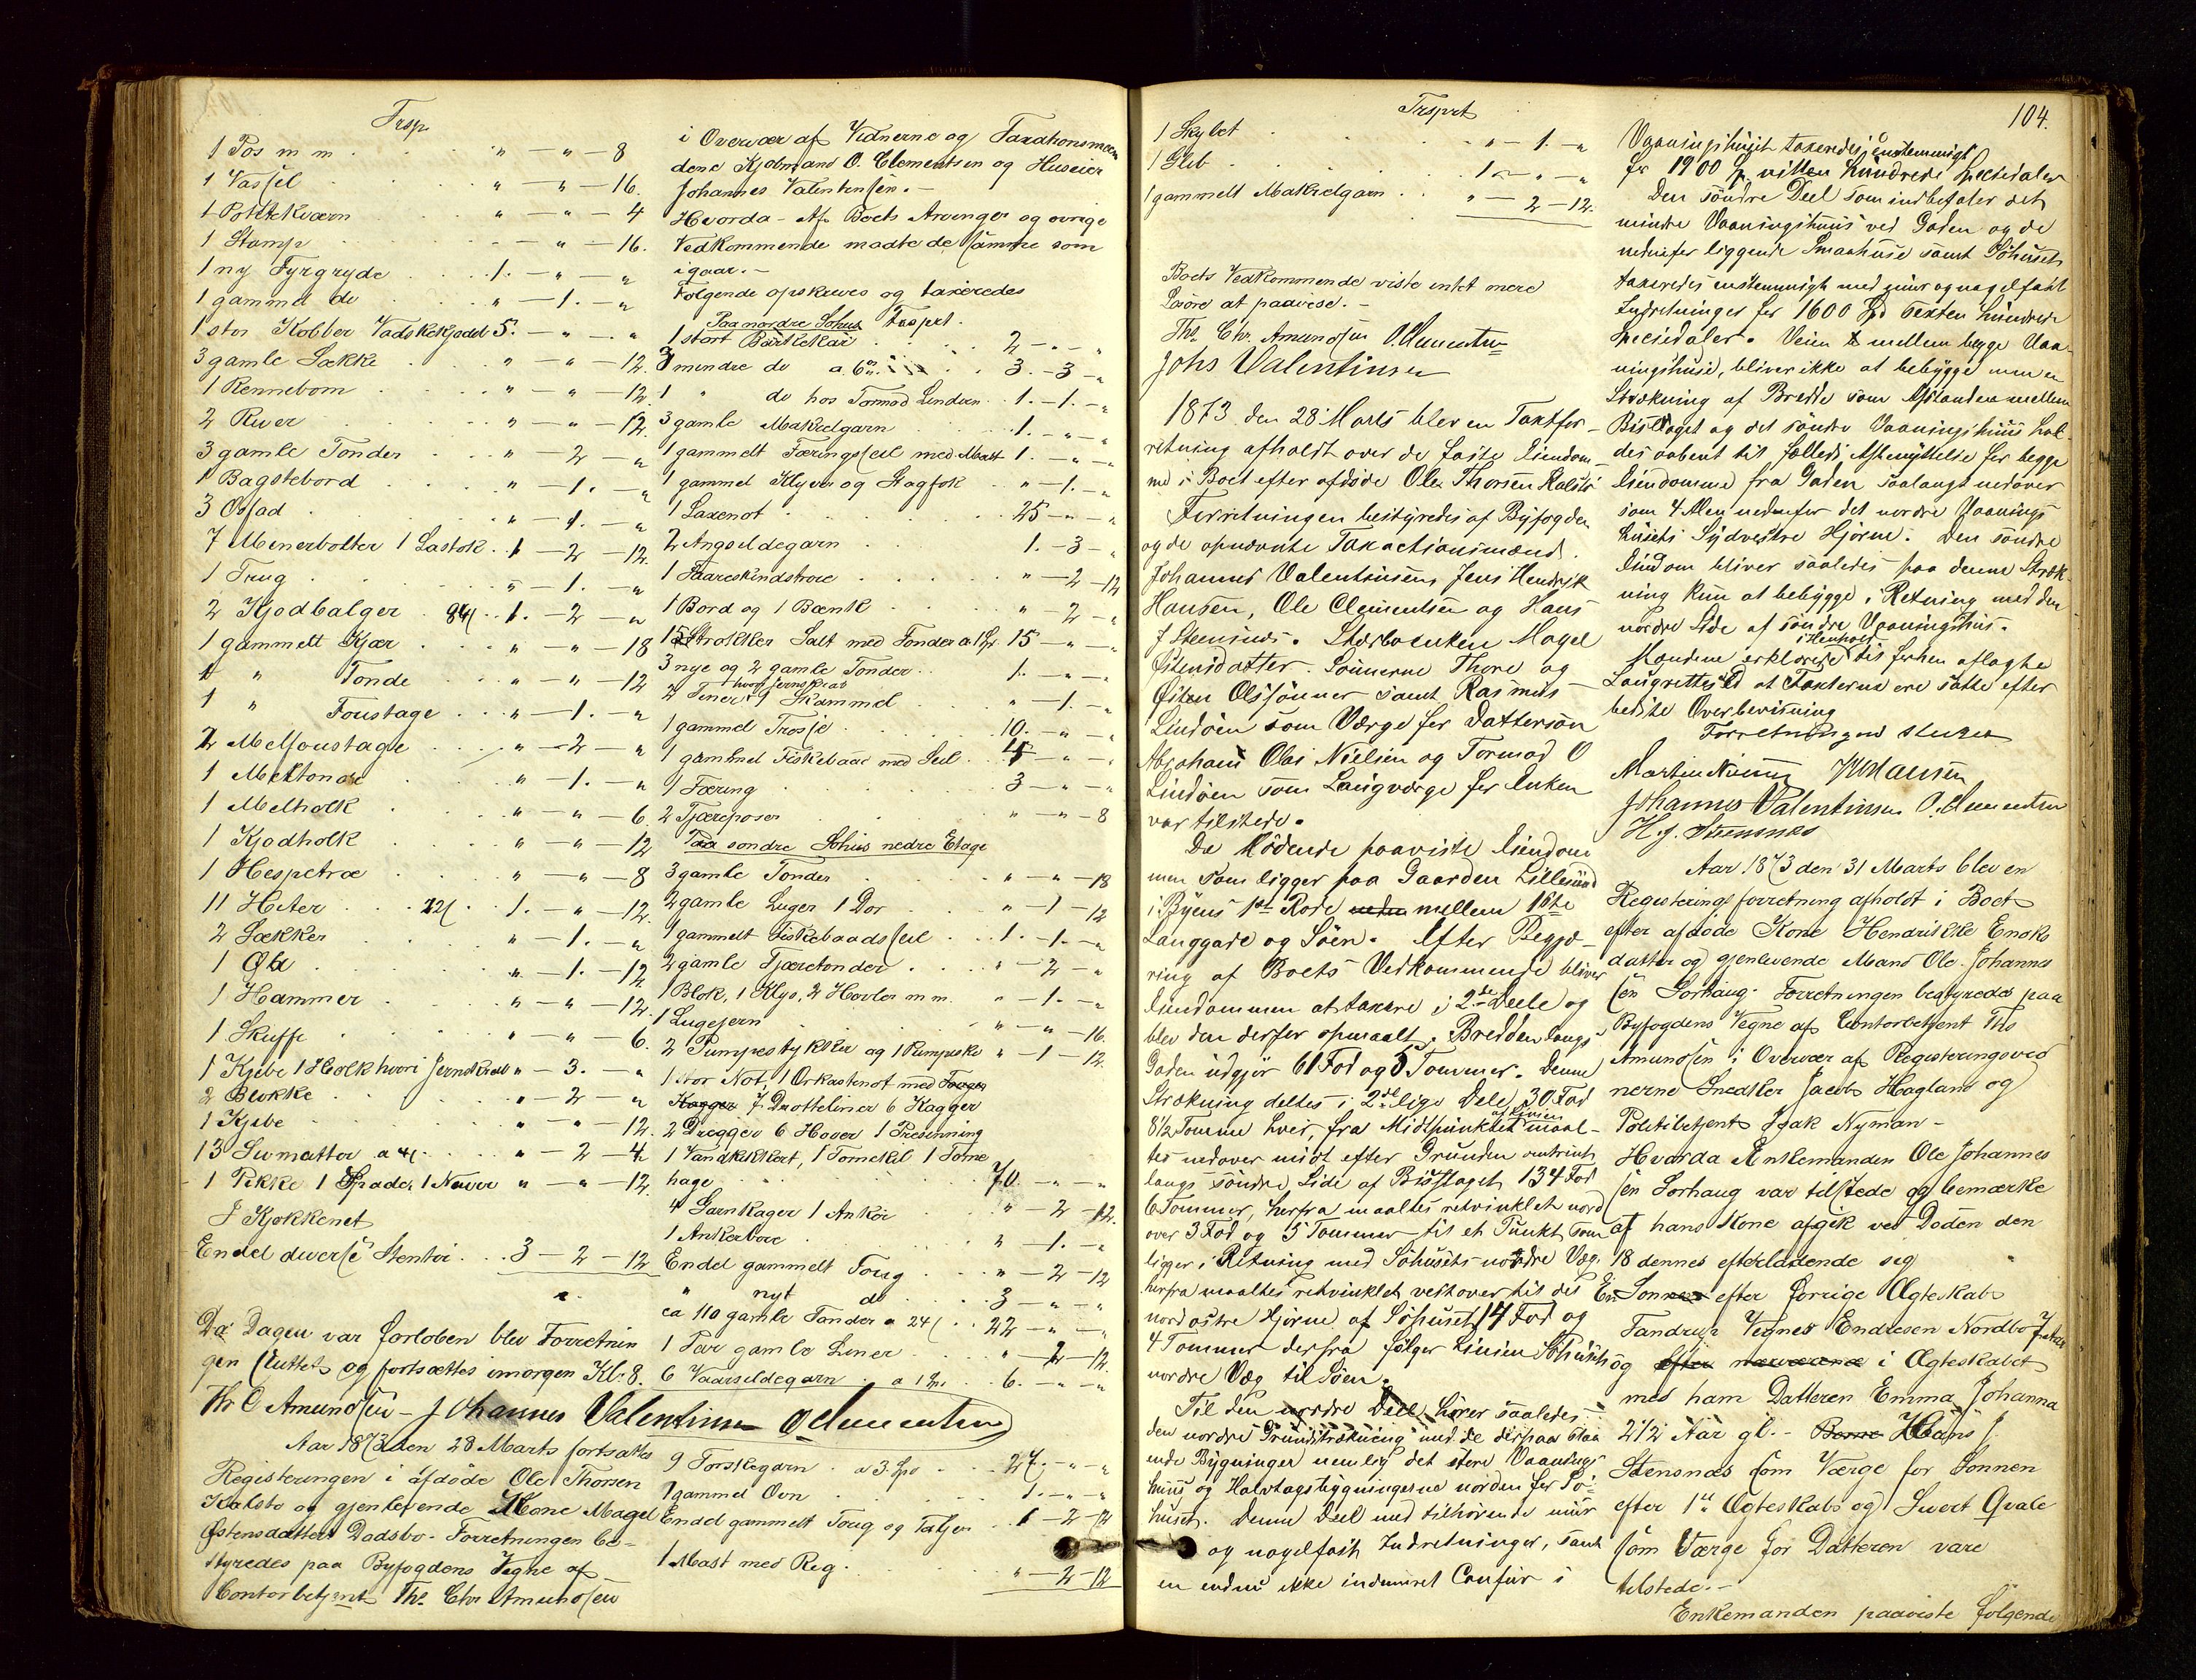 Trsp.
1 Pos m m . . . " — " — 8
1 Vassel . . " — " — 16.
1 Potetkværn . . " — " — 4
1 Stamp . . " — 16.
1 ny Fyrgryde . . . 1. — " — "
1 gammel do . . " — 1. — "
1 stor Kobber Vadskekjedel 5. — " — "
3 gamle Sække . . " — " — 12.
1 Rennebom . . " — " — 12.
2 River . . " — " — 12.
3 gamle Tønder . . " — 2 — "
1 Bagstebord . . " — 1. — "
3 Osfad . . " — 1. — "
7 Minerbolter 1 Ladstok . 1 — 2 — 12.
1 Trug . . " — 1. — "
2 Kjødbalger . 84/ . 1. — 2 — "
1 gammelt Kjær . . " — " — 18
1 " Tønde . . " — " — 12
1 " Foustage . . " — 1. — "
2 Melfoustage . . " — 2 — "
1 Meltønde . . " — 1. — "
1 Melholk . . " — " — 6.
1 Kjødholk . . " — " — 12
1 Hespetræ . . " — " — 8
11 Heter . . 12/ . 1. — " — 12.
2 Sækker . . " — 1. — "
1 Øx . . " — 1. — 12
1 Hammer . . " — " — 12.
1 Skuffe . . " — " — 6.
1 Kjibe 1 Holk hvori Jernskrab " — 3. — "
2 Blokke . . " — 2 — "
1 Kjibe . . " — " — 12.
13 Sivmatter a 4/ . . " — 2 — 4
1 Pikke 1 Spade, 1 Naver " — " — 12.
I Kjøkkenet
Endel diverse Stentøi . . 3 — 2 — 12
Da Dagen var forløben blev Forretnin
gen sluttet og fortsættes imorgen Kl. 8.
Th C Amundsen — Johannes Valentinsen O Clementsen
Aar 1873 den 28 Marts fortsattes
Registeringen i afdøde Ole Thorsen
Kalstø og gjenlevende Kone Magel
Østensdatters Dødsbo. Forretningen be=
styredes paa Byfogdens Vegne af
Contorbetjent Th. Chr Amundsen
i Overvær af Vidnerne og Taxationsmæn
dene Kjøbmand O. Clementsen og Huseier
Johannes Valentinsen. —
Hvorda - Af Boets Arvinger og øvrige
Vedkommende mødte de samme som
igaar. —
Følgende opskreves og taxeredes
Paa nordre Søhus Trsprt.
1 stort Barkekar . . 2 — " — "
3 mindre do a. 6 . . . 3. — 3 — "
1 " do hos Tormod Lindøen . 1. — 1. — "
3 gamle Makrelgarn . . 1. — " — "
1 gammelt Færingsseil med Mast 1. — " — "
1 gammel Klyver og Stagfok . " — 1. — "
1 Laxenot . . 25 — " — "
2 Angsildegarn . . 1. — 3 — "
1 Faareskindstrøie . . " — 2 — 12
1 Bord og 1 Bænk . . " — 2 — "
15 Strokker Salt med Tønder a 1 Sp. 15 — " — "
3 nye og 2 gamle Tønder . . 1. — " — "
hvori Jernskrab
2 Tiner 9 Skammel . . " — 1. — "
1 gammel Trosse . . 10. — " — "
1 gammel Fiskebaad med Seil . . — " — "
1 Færing . . 3 — " — "
2 Tjæreposer . . " — " — 8
Paa søndre Søhus nedre Etage
3 gamle Tønder . . " — " — 18
2 gamle Luger 1 Dør . . " — 1 — 12
1 gammelt Fiskebaadsseil . . 1. — 1. — "
2 gamle Tjæretønder . . " — 2 — "
1 Blok, 1 Klyo, 2 Hovler m m. " — 1. — "
1 Lugejern . . " — " — 16.
2 Pumpestykker og 1 Pumpesko " — 1 — 12.
1 stor Not, 1 Orkastenot med Tougen
Kagger 7 Drotteliner 6 Kagger
2 Dregger 6 Hover 1 Presenning
1 Vandkikkert, 1 Tomekil 1 Tome
hage . . 70. — " — "
4 Garnkager 1 Anker . . " — 2 — 12.
1 Ankerboie . . " — 1. — "
Endel gammelt Toug . . " — 2 — 12
" nyt do . . 3 — " — "
ca 110 gamle Tønder a 24/ . . 22 — " — "
1 Par gamle Liner . . " — 2 — 12
6 Vaarsildegarn . a 1 Sp. . . 6. — " — "
9 Torskegarn . a 3 Spd . . 27. — " — "
1 gammel Ovn . . 1. — " — "
Endel gammelt Toug og Taljer . 1 — 2 — 12
1 Mast med Rig. . . " — 2 — 12
Trsprt
1 Skylet . . " — 1. — "
1 Gleb . . 1 — " — "
1 gammelt Makrelgarn . . " — 2 — 12.
Boets Vedkommende viste intet mere
Løsøre at paavise. —
Th. Chr. Amundsen O. Clementsen
Johs Valentinsen
1873 den 28 Marts blev en Taxtfor-
retning afholdt over de faste Eiendom-
me i Boet efter afdøde Ole Thorsen Kalstø
Forretningen bestyredes af Byfogden
og de opnævnte Taxationsmænd.
Johannes Valentinsen, Jens Hendrik
Hansen, Ole Clementsen og Hans
J Steensnæs. Stervboenken Magel
Østensdatter. Sønnerne Thore og
Østen Olssønner samt Rasmus
Lindøen som Værge for Dattersøn
Abraham Olai Nielsen og Tormod O
Lindøen som Laugværge for Enken
var tilstede.
De Mødende paaviste Eiendom
men som ligger paa Gaarden Lillesund
i Byens 1ste Rode mellem 1ste
Langgade og Søen. Efter Begjæ-
ring af Boets Vedkommende bliver
Eiendommen at taxere i 2de Deele og
blev den derfor opmaalt. Bredden langs
Gaden udgjør 61 Fod og 5 Tommer. Denne
Strækning deeltes i 2de lige Dele, 30 Fod
8 1/2 Tomme hver, fra Midtpunktet af Linien maal-
tes nedover midt efter Grunden omtrent
langs søndre Side af Bisslaget 134 Fod
6 Tommer, herfra maaltes retvinklet nord
over 3 Fod og 5 Tommer til et Punkt som
ligger i Retning med Søhusets nordre Væg.
herfra maaltes retvinklet vestover til det
nordøstre Hjørne af Søhuset 14 Fod og
4 Tommer derfra følger Linien Søhusets
nordre Væg til Søen.
Til den nordre Deel hører saaledes
den nordre Grundstrækning med de derpaa staa
ende Bygninger nemlig det store Vaanings
huus og Halvtagsbygningerne norden for Sø-
huset. Denne Deel med tilhørende muur
og nagelfaste Indretninger, samt
en endnu ikke indmuret Comfur i
104.
Vaaningshuset taxeredes enstemmigt
for 1900 Sp. nitten hundrede Speciedaler
Den søndre Deel som indbefater det
mindre Vaaningshuus ved Gaden og de
nedenfor liggende Smaahuse samt Søhuset
taxeredes enstemmigt med muur og nagelfaste
Indretninger for 1600 Spd Sexten hundrede
Speciedaler. Veien mellem begge Vaa-
ningshuse, bliver ikke at bebygge men en
Strækning af Bredde som Afstanden mellem
Bisslaget og det søndre Vaaningshuus hol-
des aabent til fælleds Afbenyttelse for begge
Eiendomme fra Gaden saalangt nedover
som 4 Alen nedenfor det nordre Vaanings
husets Sydvestre Hjørne. Den søndre
Eiendom bliver saaledes paa denne Stræk-
ning kun at bebygge i Retning med den
nordre Side af søndre Vaaningshus.
Mændene erklærede i Henhold til forhen aflagte
Laugrettes Ed at Taxterne ere satte efter
bedste Overbevisning
Forretningen sluttet
Martin JHHansen
Johannes Valentinsen O. Clementsen
H. J. Steensnæs
Aar 1873 den 31 Marts blev en
Registeringsforretning afholdt i Boet
efter afdøde Kone Hendrikke Enoks
datter og gjenlevende Mand Ole Johannes
sen Sørhaug. Forretningen bestyredes paa
Byfogdens Vegne af Contorbetjent Ths
Amundsen i Overvær af Registeringsvid
nerne Snedker Jacob Hagland og
Politibetjent Isak Nyman —
Hvorda Enkemanden Ole Johannes
sen Sørhaug var tilstede og bemærke
at hans Kone afgik ved Døden den
18 dennes efterladende sig
En Søn efter forrige Ægteskab
Tandrup Vegner Endresen Nordbø
og efter nærværende i Ægteskabet
med ham Datteren Emma Johanna
2 1/2 Aar gl. — Hans J.
Stensnæs som Værge for Sønnen
efter 1st Ægteskab og Sivert Qvale
som Værge for Datteren vare
tilstede. —
Enkemanden paaviste følgende